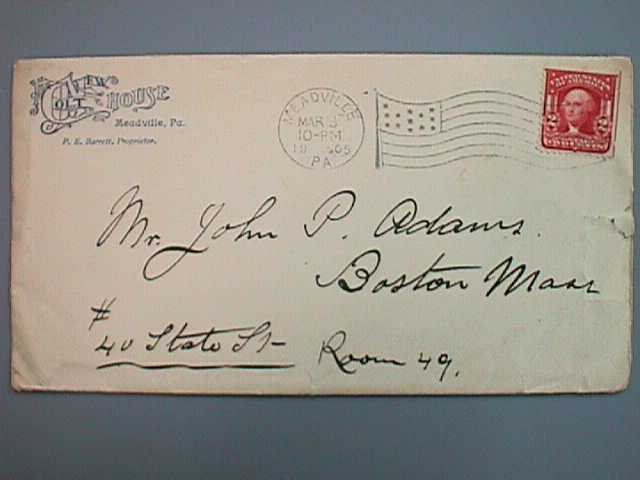 NEW
COLT HOUSE
Meadville, Pa.
P. E. Barrett, Proprietor.
MEADVILLE
MAR 3
10-PM
1905
PA
UNITED STATES
OF AMERICA
2 2
Mr. John P. Adams.
Boston Mass
#
40 State St
Room 49.